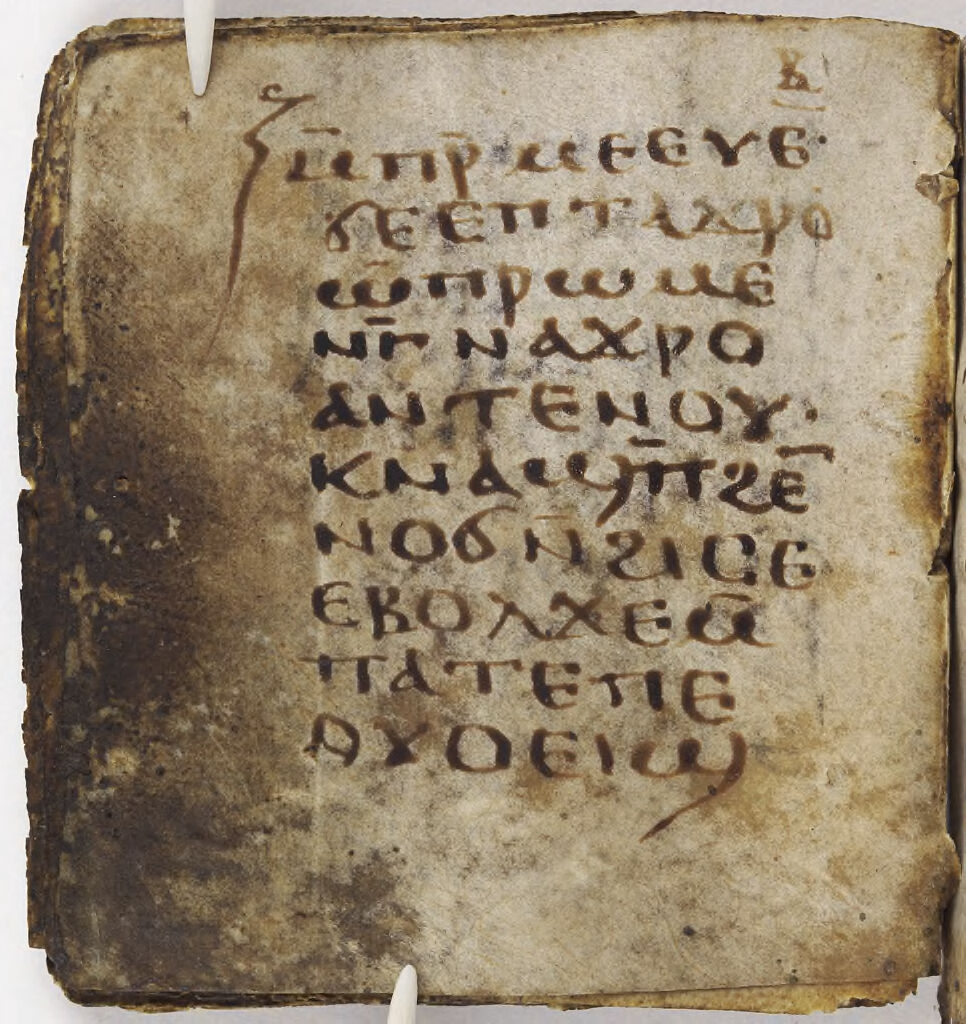 ⲃ
ⲙ̄ⲡⲣ̄ⲙⲉⲉⲩⲉ·
ϭⲉⲉⲡⲧⲁϫⲣⲟ
ⲙ̄ⲡⲣⲱⲙⲉ
ⲛⲅ̄ⲛⲁϫⲣⲟ
ⲁⲛⲧⲉⲛⲟⲩ·
ⲕⲛⲁϣⲡ̄ϩⲉⲛ̄
ⲛⲟϭⲛ̄ϩⲓⲥⲉ
ⲉⲃⲟⲗϫⲉⲙ̄
ⲡⲁⲧⲉⲡⲉ
ⲟⲩⲟⲉⲓϣ